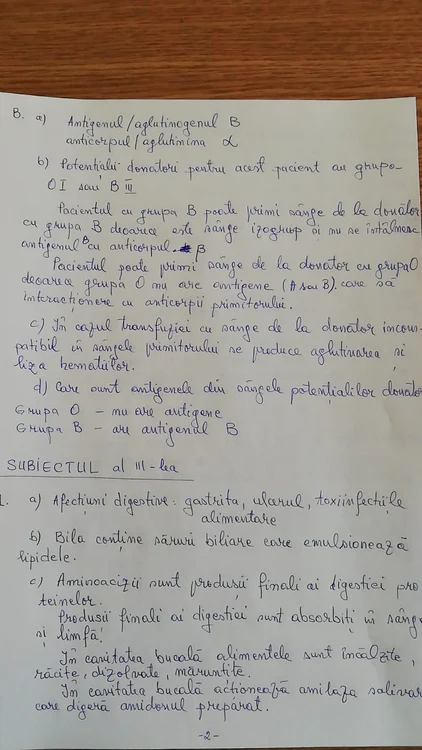 B. a) Antigenul/aglutinogenul B
anticorpul/aglutinina α
b) Potențialii donatori pentru acest pacient au grupa
O I sau B III
Pacientul cu grupa B poate primi sânge de la donator
cu grupa B deoarece este sânge izogrup și nu se întâlnesc
antigenul B cu anticorpul β
Pacientul poate primi sânge de la donator cu grupa O
deoarece grupa O nu are antigene (A sau B) care să
interacționere cu anticorpii primitorului.
c) În cazul transfuziei cu sânge de la donator incom-
patibil în sângele primitorului se produce aglutinarea și
liza hematiilor.
d) Care sunt antigenele din sângele potențialilor donator
Grupa O – nu are antigene
Grupa B – are antigenul B
SUBIECTUL al III-lea
1. a) Afecțiuni digestive: gastrita, ularul, toxiinfecțiile
alimentare
b) Bila conține săruri biliare care emulsionează
lipidele.
c) Aminoacizii sunt produsii finali ai digestiei pro
teinelor.
Produsii finali ai digestiei sunt absorbiți în sânge
și limfă.
În cavitatea bucală alimentele sunt încălzite,
răcite, dizolvate, mărunțite.
În cavitatea bucală acționează amilaza salivar
care digeră amidonul preparat.
-2-